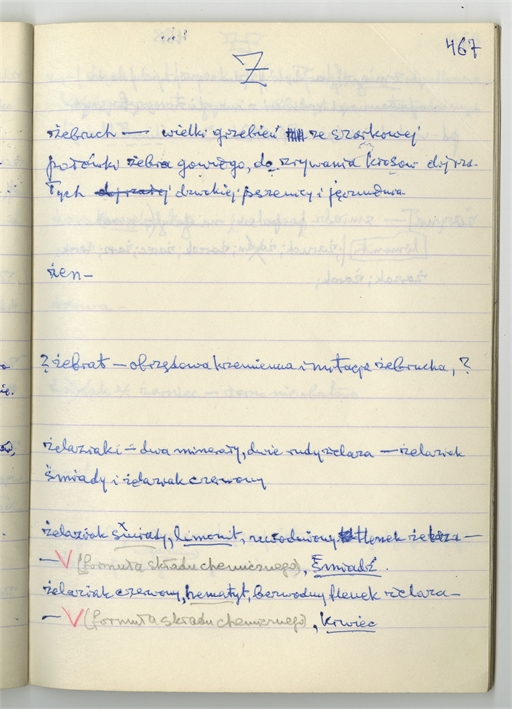 467
Ż
żebruch — wielki grzebień ze szorkowej
połówki żebra gowiego, do zrywania kłosów dojrza-
łych dojrzałej dzikiej pszenicy i jęczmienia
żen-
? żebrał — obrzędowa krzemienna imitacja żebrucha, ?
żelaziaki — dwa minerały, dwie rudy żelaza — żelaziak
śmiady i żelaziak czerwony
żelaziak śmiady, limonit, uwodniony tlenek żelaza —
— V (formuła składu chemicznego), śmiadź.
żelaziak czerwony, hematyt, bezwodny tlenek żelaza —
— V (formuła składu chemicznego), krwiec